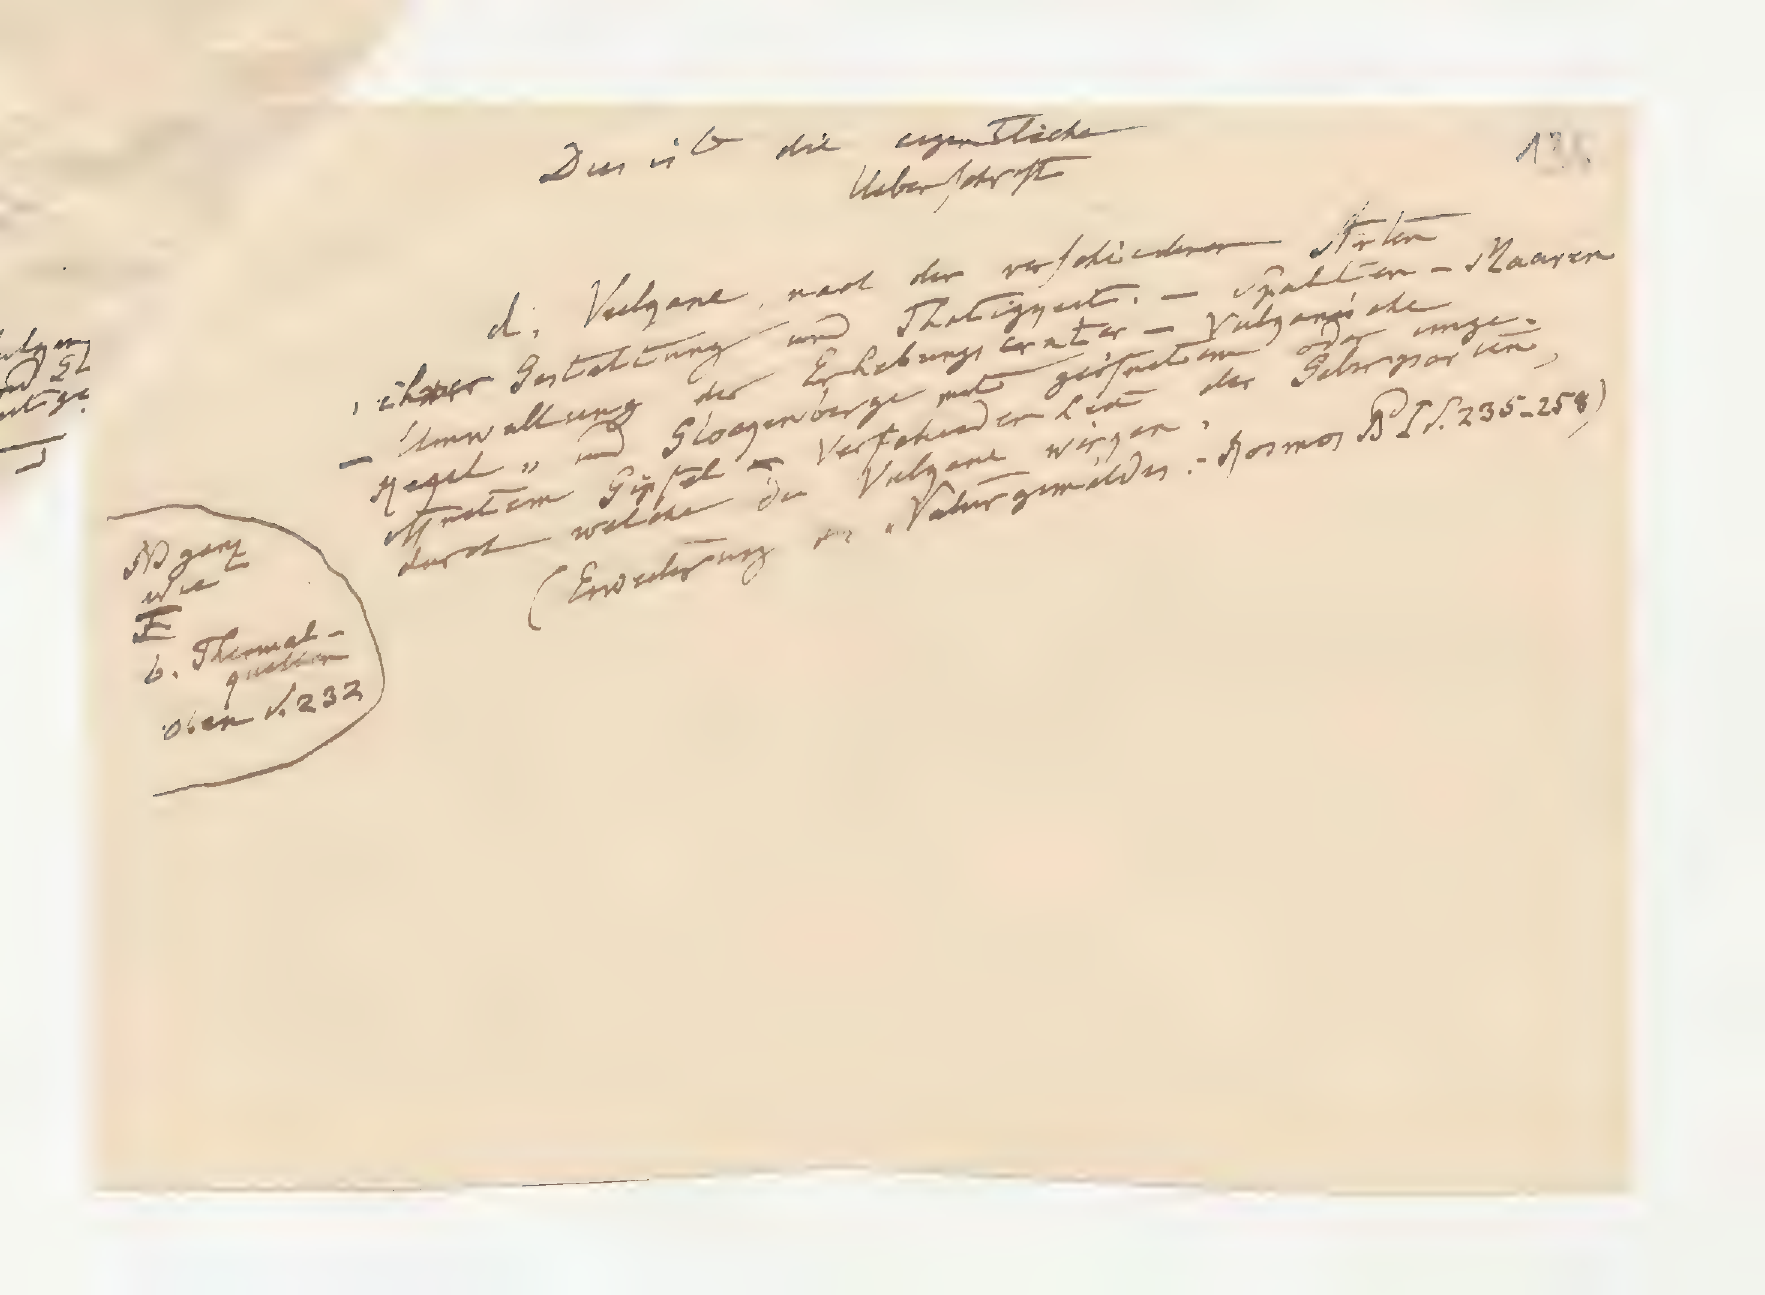 Dies ist die eigentliche
Ueberschrift
135
d. Vulkane, nach der verschiedenen Arten
ihrer Gestaltung und Thätigkeit. – Spalten – Maaren
– Umwallung der Erhebungscrater – Vulkanische
Kegel und Glockenberge mit geöfnetem oder unge-
öffnetem Gipfel – Verschiedenheit der Gebirgsarten,
durch welche die Vulkane wirken.
(Erweiterung des Naturgemäldes: Kosmos Bd I S. 235–258)
NB ganz
wie
b. Thermal-
quellen
oben S. 232